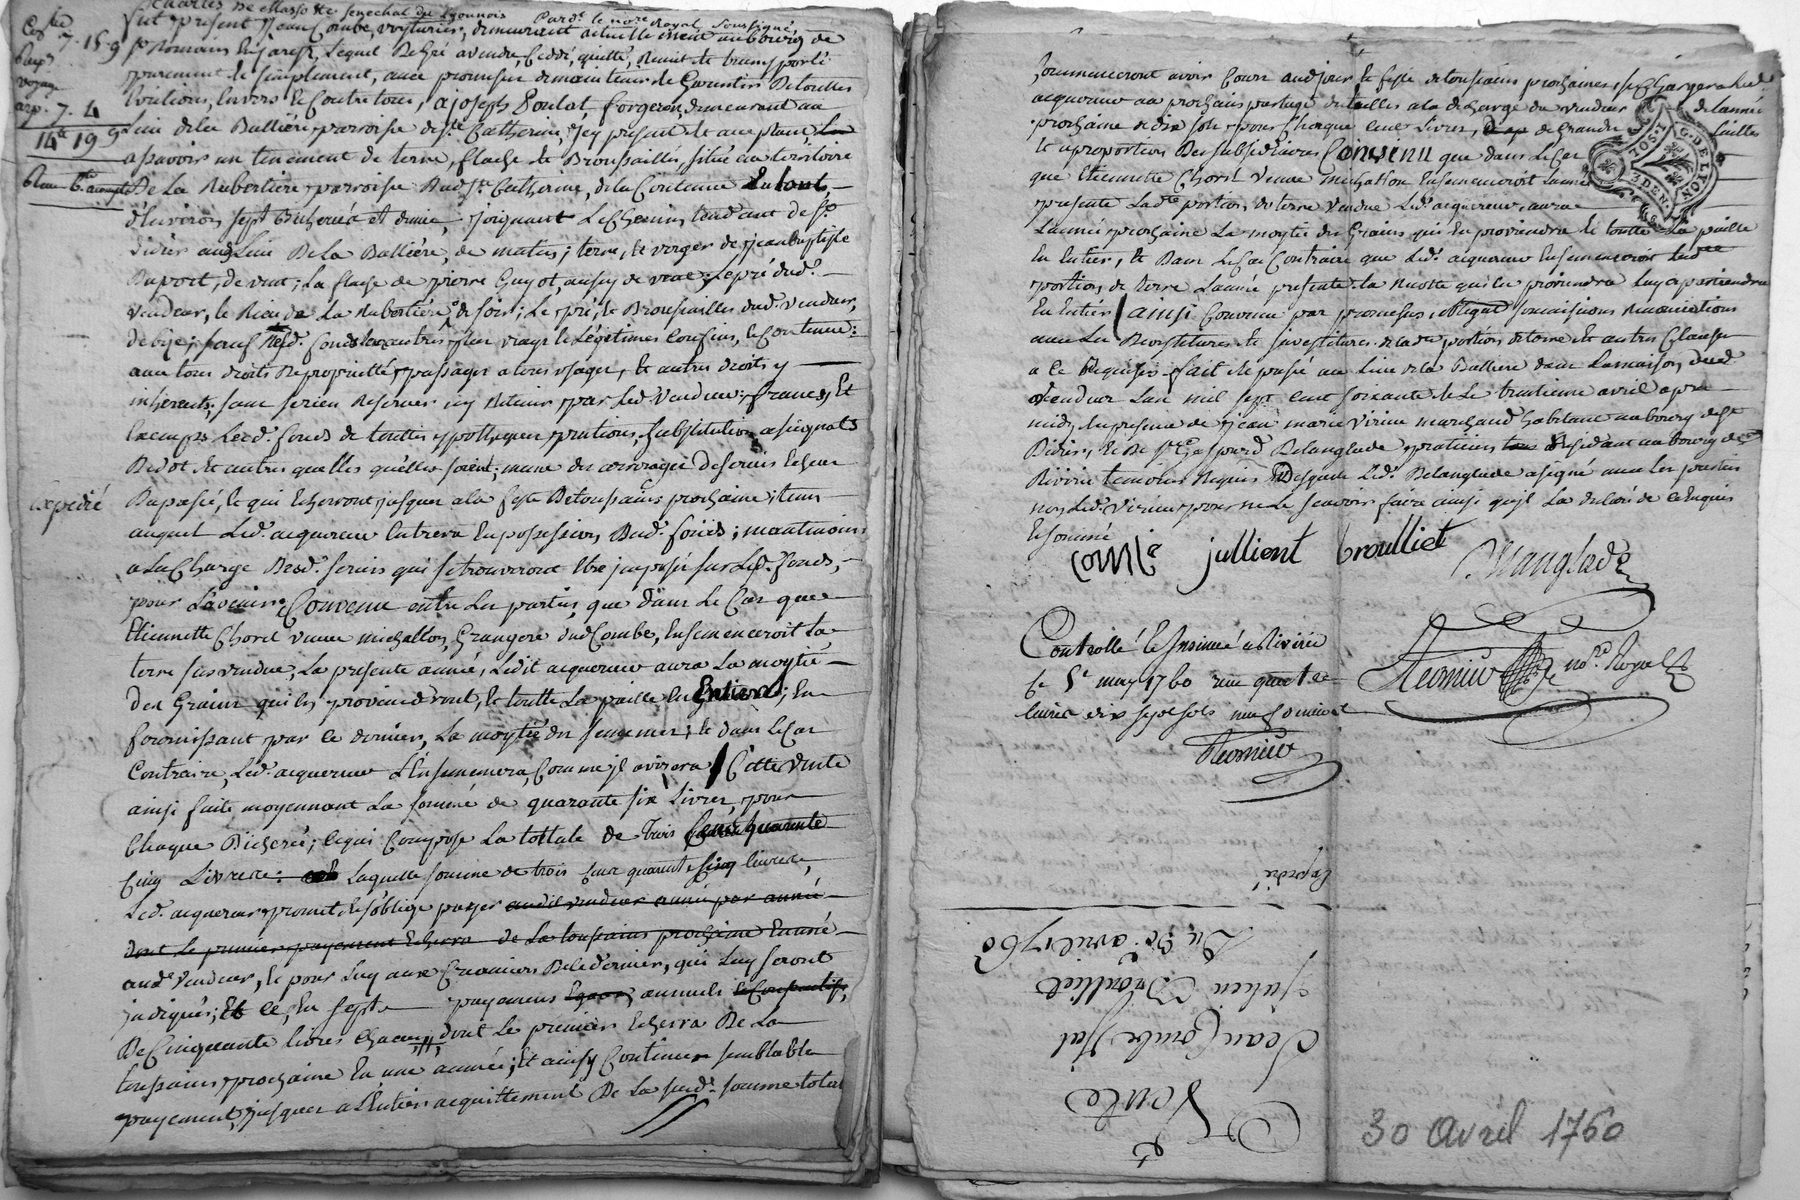 Par dt. le nore Royal soussigné
fut présent Jean Combe, voyturier, demeurant actuellement au bourg de
St Romain En Jarest, Lequel De gré a vendu, Ceddé, quitté, Remit et transporté
purement et simplement, avec promesse de maintenir et Garentir De touttes
Evictions, Envers Et Contre tous, a joseph Poulat forgeron, demeurant au
Lieu de la Ballière, parroise de Ste Catherine, jcy présent et acceptant
a savoir un tenement de terre, flache et Broussailles, situé au territoire
De La Aubertière, parroise Audt. Ste Catherine, de la Contenue En tout,
d'Environ sept Bicherées et demie, joignant Le Chemin tendant de St
didier aud. Lieu De La Ballière, de matin; terre, et verger de jean baptiste
Duport, de vent; la flache de pierre Guyot, aussy de vent; Le pré dud.
vendeur, le Rieu de La Aubertière de soir; Le pré, et Broussailles dud. vendeur,
de bize; sauf desd. fonds les autres plus vrays et Légitimes Confins, et Contenue:
avec tous droits de propriétté, passages a tous usages, et autres droits y
inhérents, sans se rien Réserver ny Retenir par Led. vendeur; francs, Et
Exempts Lesd. fonds de touttes ypothèques, pentions, substitution, assignats
De Dot, et autres quelles qu'elles soient; mesme des arrérages De servis Echeus
Du passé, et qui Echerront jusques a la feste De toussaints prochaine; tems
auquel Led. acquereur Entrera En possession Dud. fonds; neantmoins
a La Charge Desd. servis qui se trouveront Etre imposés sur Lesd. fonds,
pour L'avenir. Convenu entre Les parties, que dans Le Cas que
Etiennette Chorel veuve michallon, Grangere dud. Combe, Ensemenceroit La
terre sus vendue, La présente année, Ledit acquereur aura La moytié
Des Grains qui En proviendront, et toutte La paille En Entiere; En
fournissant par Ce dernier, La moytié des semences; et dans Le Cas
Contraire, Led. acquereur L'Ensemencera, Comme jl avisera / Cette vente
ainsi faite moyennant La somme de quarante six Livres, pour
Chaque Bicherée; Ce qui Compose La tottale de trois Cent quarante
Cinq Livres: Laquelle somme de trois Cent quarante Cinq livres,
Led. acquereur promet Et s'oblige payer au dit vendeur année par année
dont Le premier payement Echerra de La toussaints prochaine En une année
aud. vendeur, et pour Luy aux Creanciers De Ce dernier, qui Luy seront
jndiqués; Et Ce, En sept payements Egaux, annuels et Consecutifs,
De Cinquante livres Chacun, dont Le premier Echerra De La
toussaints prochaine En une année; Et ainsy Continuer semblable
payement, jusques a L'Entier acquittement De La susd. somme totale
expedié
7 . 15 . 9
arp. 7 . 4
14 19 9
Commenceront avoir Cours audjour, et feste de toussaints prochaines; se Chargera Led.
acquereur au prochain partage de tailles a la décharge du vendeur de l'année
prochaine de dix sols pour Chaque Cent Livres, de Grande tailles
et a proportion Des subsidiaires Convenu que dans Le Cas
que Etiennette Chorel veuve michallon Ensemenceroit L'année
présente Lade. portion de terre vendue Led. acquereur, aura
L'année prochaine La moytié des Grains qui En proviendra et toutte La paille
En Entier, Et Dans Le Cas Contraire que Led. acquereur Ensemenceroit Lad.
portion, de terre L'année présente, la Recolte qui En proviendra Luy apartiendra
En Entier / ainsi Convenu par promesses, obligaon. soumissions Renonciations
avec Les Devestitures et Investitures de lade. portion de terre et autres Clauses
a ce Requises. fait et passé au Lieu de la Balliere dans La maison dud.
vendeur L'an mil sept Cent soixante et Le trentieme avril apres
midy, En presence de jean marie virieu marchand habitant au bourg de St
Didier, et De Sr Gaspard Delanglade praticien Residant au bourg de
Riverie temoins Requis Desquels Led. Delanglade a signé avec Les parties
non Led. Virieu pour ne Le scavoir faire ainsi qu'jl L'a declaré de ce Enquis
Et sommé
Combe jullient broulliet
Delanglade
Controllé et Insinué a Riverie
Ce 5e may 1760 reçu quatorze
livres dix neuf sols neuf deniers
nore. Royal
G. DE LYON
3 DEN.
Expédié
Du 30 avril 1760
Julien Broulliet
Jean Combe
Vente
30 Avril 1760